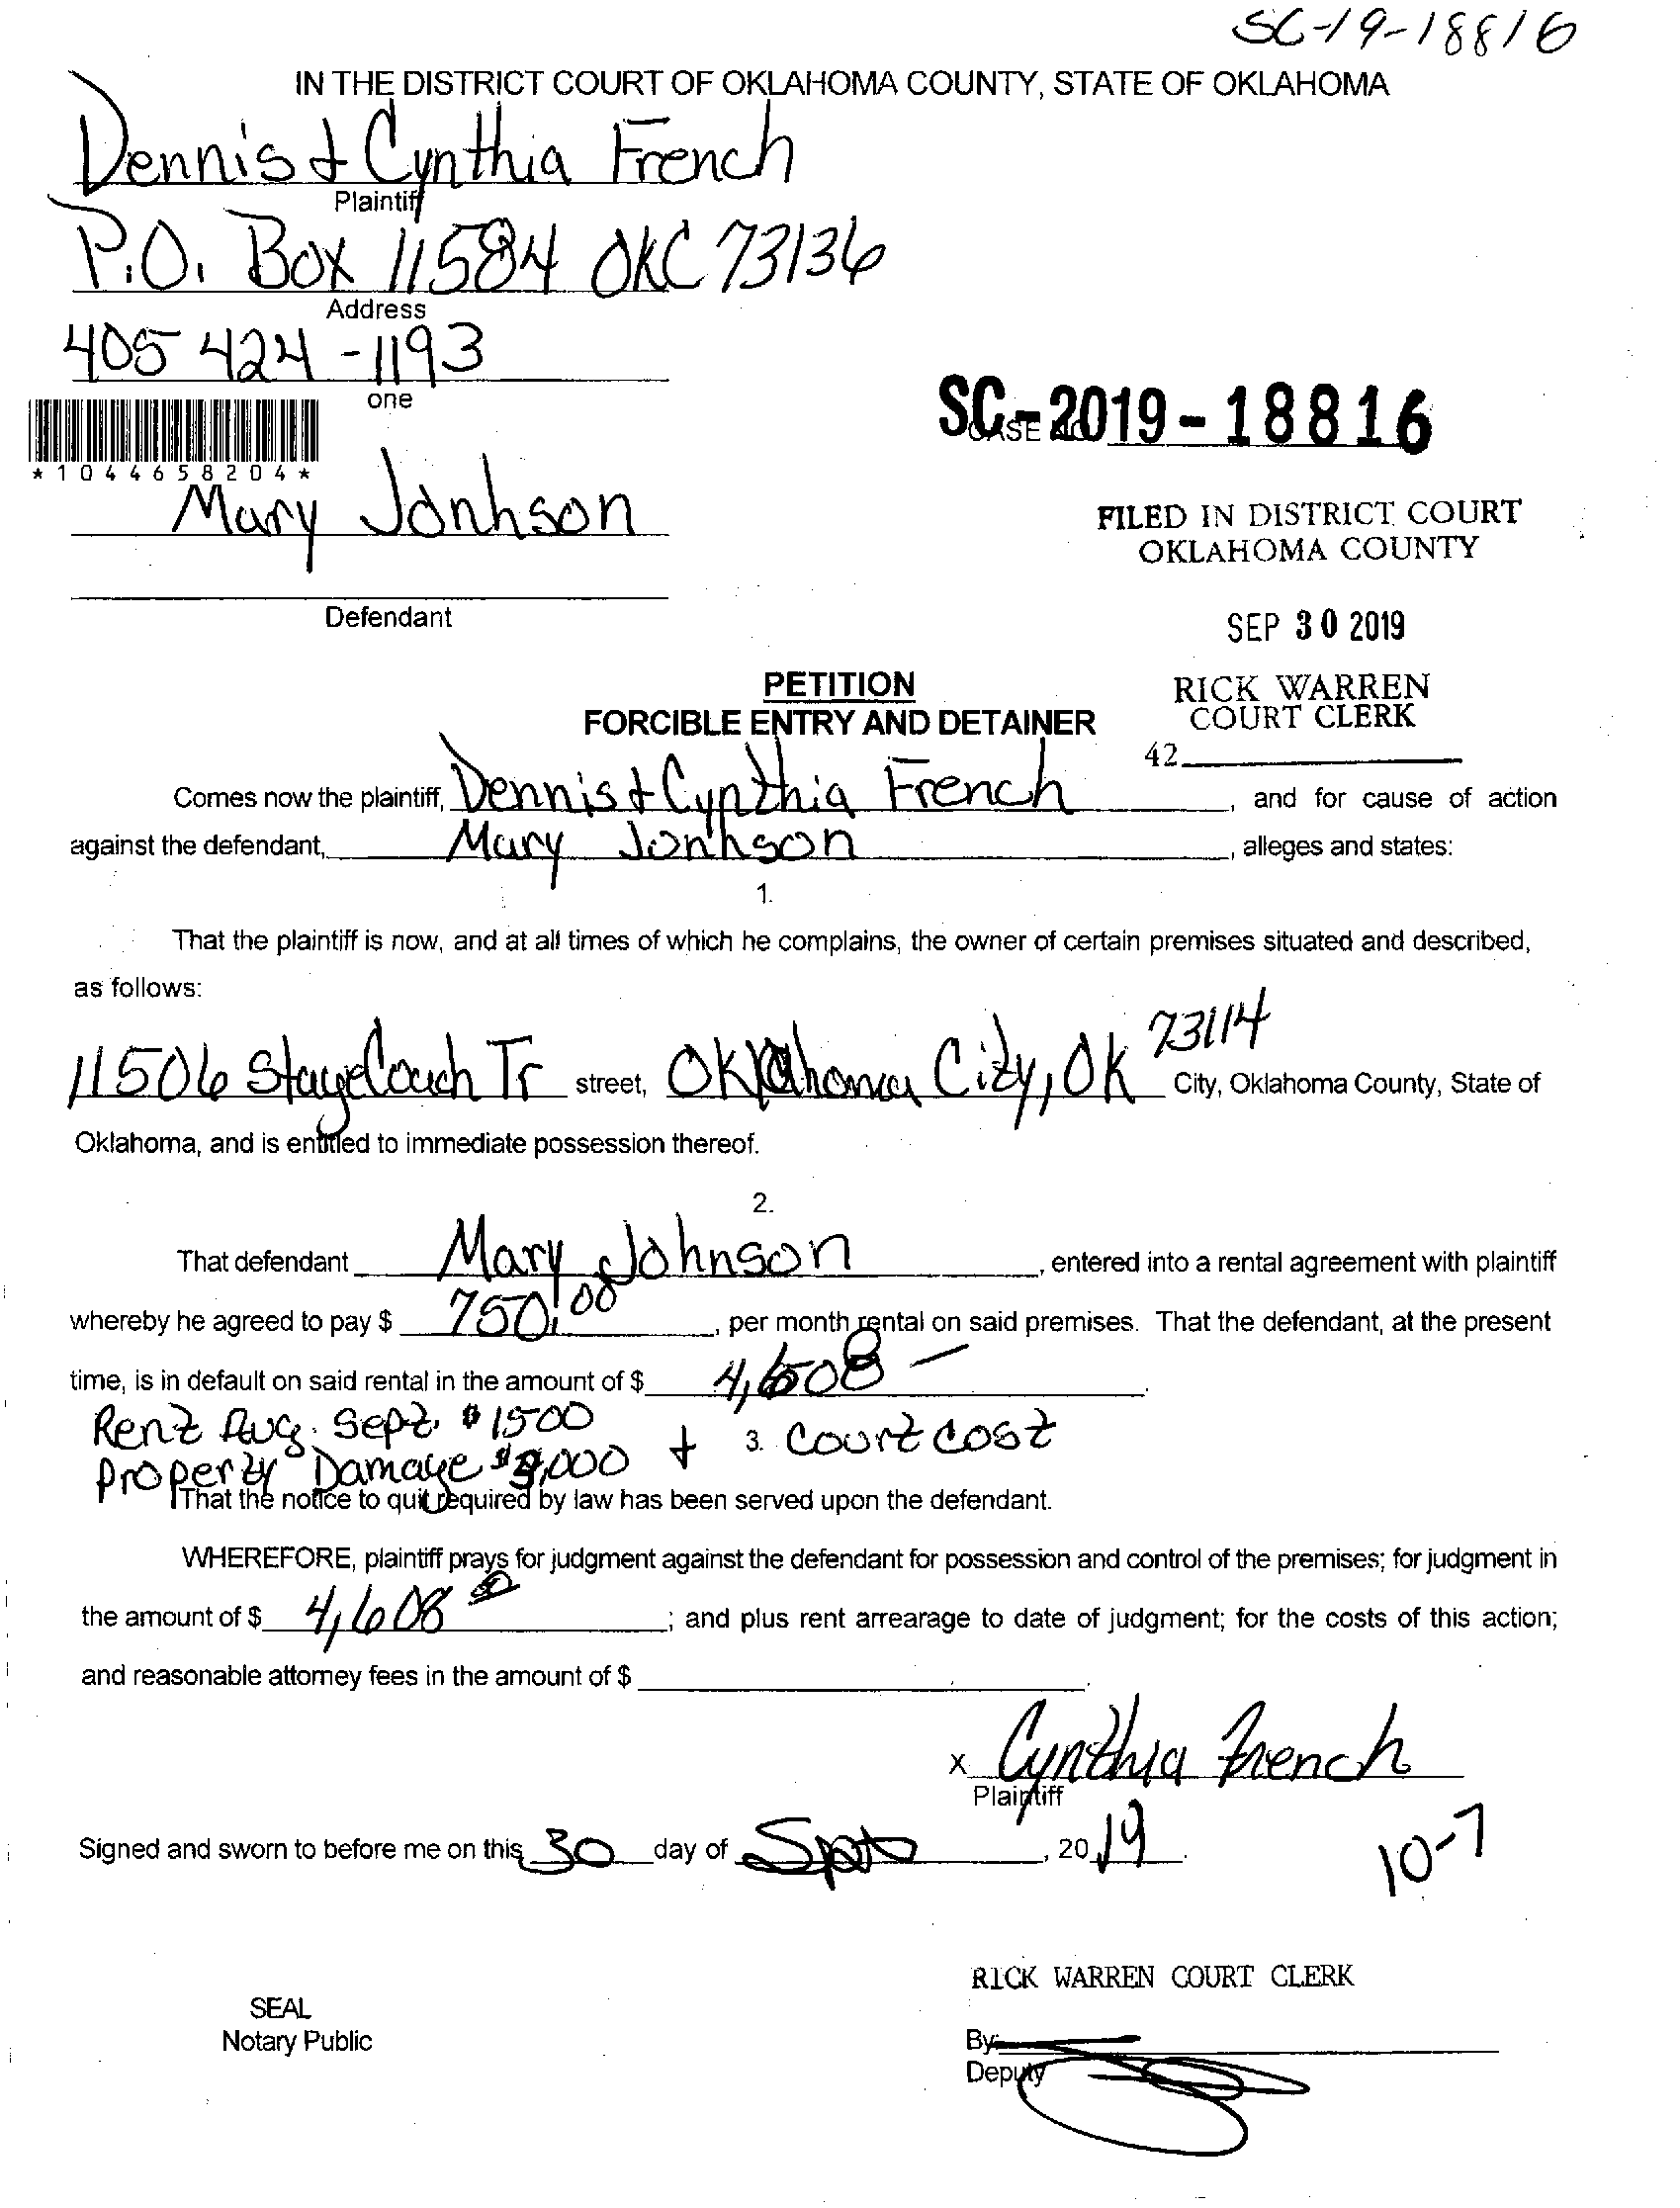 SC-19-18816
IN THE DISTRICT COURT OF OKLAHOMA COUNTY, STATE OF OKLAHOMA
Dennis & Cynthia French
Plaintiff
P.O. Box 11584 OKC 73136
Address
405 424-1193
one
SC-2019-18816
CASE NO.
*1044658204*
Mary Jonhson
FILED IN DISTRICT COURT
OKLAHOMA COUNTY
Defendant
SEP 30 2019
PETITION
RICK WARREN
FORCIBLE ENTRY AND DETAINER
COURT CLERK
42
Comes now the plaintiff, Dennis & Cynthia French, and for cause of action
against the defendant, Mary Jonhson, alleges and states:
1.
That the plaintiff is now, and at all times of which he complains, the owner of certain premises situated and described,
as follows:
11506 StageCoach Tr street, Oklahoma City, OK 73114 City, Oklahoma County, State of
Oklahoma, and is entitled to immediate possession thereof.
2.
That defendant Mary Johnson, entered into a rental agreement with plaintiff
whereby he agreed to pay $ 750.00, per month rental on said premises. That the defendant, at the present
time, is in default on said rental in the amount of $ 4,608 -.
Rent Aug. Sept. $1500
Property Damage $ + 3. Court cost
That the notice to quit required by law has been served upon the defendant.
WHEREFORE, plaintiff prays for judgment against the defendant for possession and control of the premises; for judgment in
the amount of $ 4,608; and plus rent arrearage to date of judgment; for the costs of this action;
and reasonable attorney fees in the amount of $.
x Cynthia French
Plaintiff
Signed and sworn to before me on this 30 day of Sept, 2019.
10-7
RICK WARREN COURT CLERK
SEAL
Notary Public
By:
Deputy